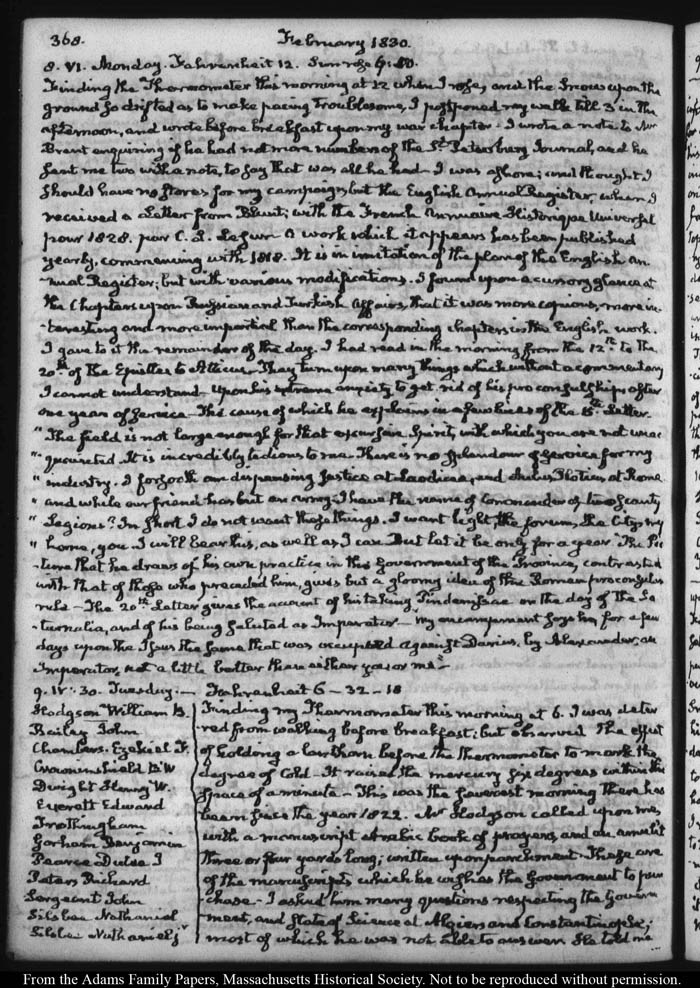 368. February 1830.
8. VI. Monday. Fahrenheit 12. Sun rose
Finding the Thermometer this morning at 12 when I rose, and the Snow upon the
ground so drifted as to make pacing troublesome, I postponed my walk till 3 in the
afternoon, and wrote before breakfast upon my war chapter. I wrote a note to Mr
Brent enquiring if he had not more numbers of the St. Petersburg Journal, and he
sent me two with a note, to say that was all he had. I was ashore; and thought I
should have no stores for my campaign but the English Annual Register, when I
received a Letter from Blunt; with the French Annuaire Historique Universel
pour 1828. par C. L. Lesur. A work which it appears has been published
yearly, commencing with 1818. It is an imitation of the plan of the English An
-nual Register; but with various modifications. I found upon a cursory glance at
the Chapters upon Russian and Turkish Affairs, that it was more copious, more in
-teresting and more impartial than the corresponding chapters in the English work.
I gave to it the remainder of the day. I had read in the morning from the 12th to the
20th of the Epistles to Atticus. They turn upon many things which without a commentary
I cannot understand. Upon his extreme anxiety to get rid of his proconsulship after
one year of service. The cause of which he explains in a few lines of the 15th Letter.
"The field is not large enough for that excursive Spirit, with which you are not unac
"-quainted. It is incredibly tedious to me. There is no splendour of service for my
"industry. I forsooth am dispensing Justice at Laodicea, and Aulus Plotius at Rome
"and while our friend has but an army, I have the name of Commander of two scanty
"Legions? In short I do not want these things. I want light, the forum, the City, my
"home, you. I will bear this, as well as I can. But let it be only for a year." The Pic
-ture that he draws of his own practice in this Government of the Province, contrasted
with that of those who preceded him, gives but a gloomy idea of the Roman proconsular
rule. The 20th Letter gives the account of his taking Pindenissae on the day of the Sa
-turnalia, and of his being saluted as Imperator. "My encampment says he, for a few
days upon the Issus the same that was occupied against Darius, by Alexander, an
Imperator, not a little better than either you or me"
9. IV:30. Tuesday. Fahrenheit 6 – 32 – 18
Hodgson William B.
Bailey John
Chambers. Ezekiel F.
Crowninshield B W
Dwight Henry W.
Everett Edward
Frothingham
Gorham Benjamin
Pearce Dutee J
Peters Richard
Sergeant John
Silsbee Nathaniel
Silsbee Nathaniel jr
Finding my Thermometer this morning at 6. I was deter
-red from walking before breakfast; but observed the effect
of holding a lanthorn before the thermometer to mark the
degree of Cold. It raised the mercury six degrees within the
space of a minute. This was the severest morning there has
been since the year 1822. Mr Hodgson called upon me,
with a manuscript Arabic book of prayers, and an amulet
three or four yards long; written upon parchment. These are
of the manuscripts which he wishes the Government to pur
chase. I asked him many questions respecting the Govern
ment, and State of Science at Algiers and Constantinople;
most of which he was not able to answer. He told me
From the Adams Family Papers, Massachusetts Historical Society. Not to be reproduced without permission.